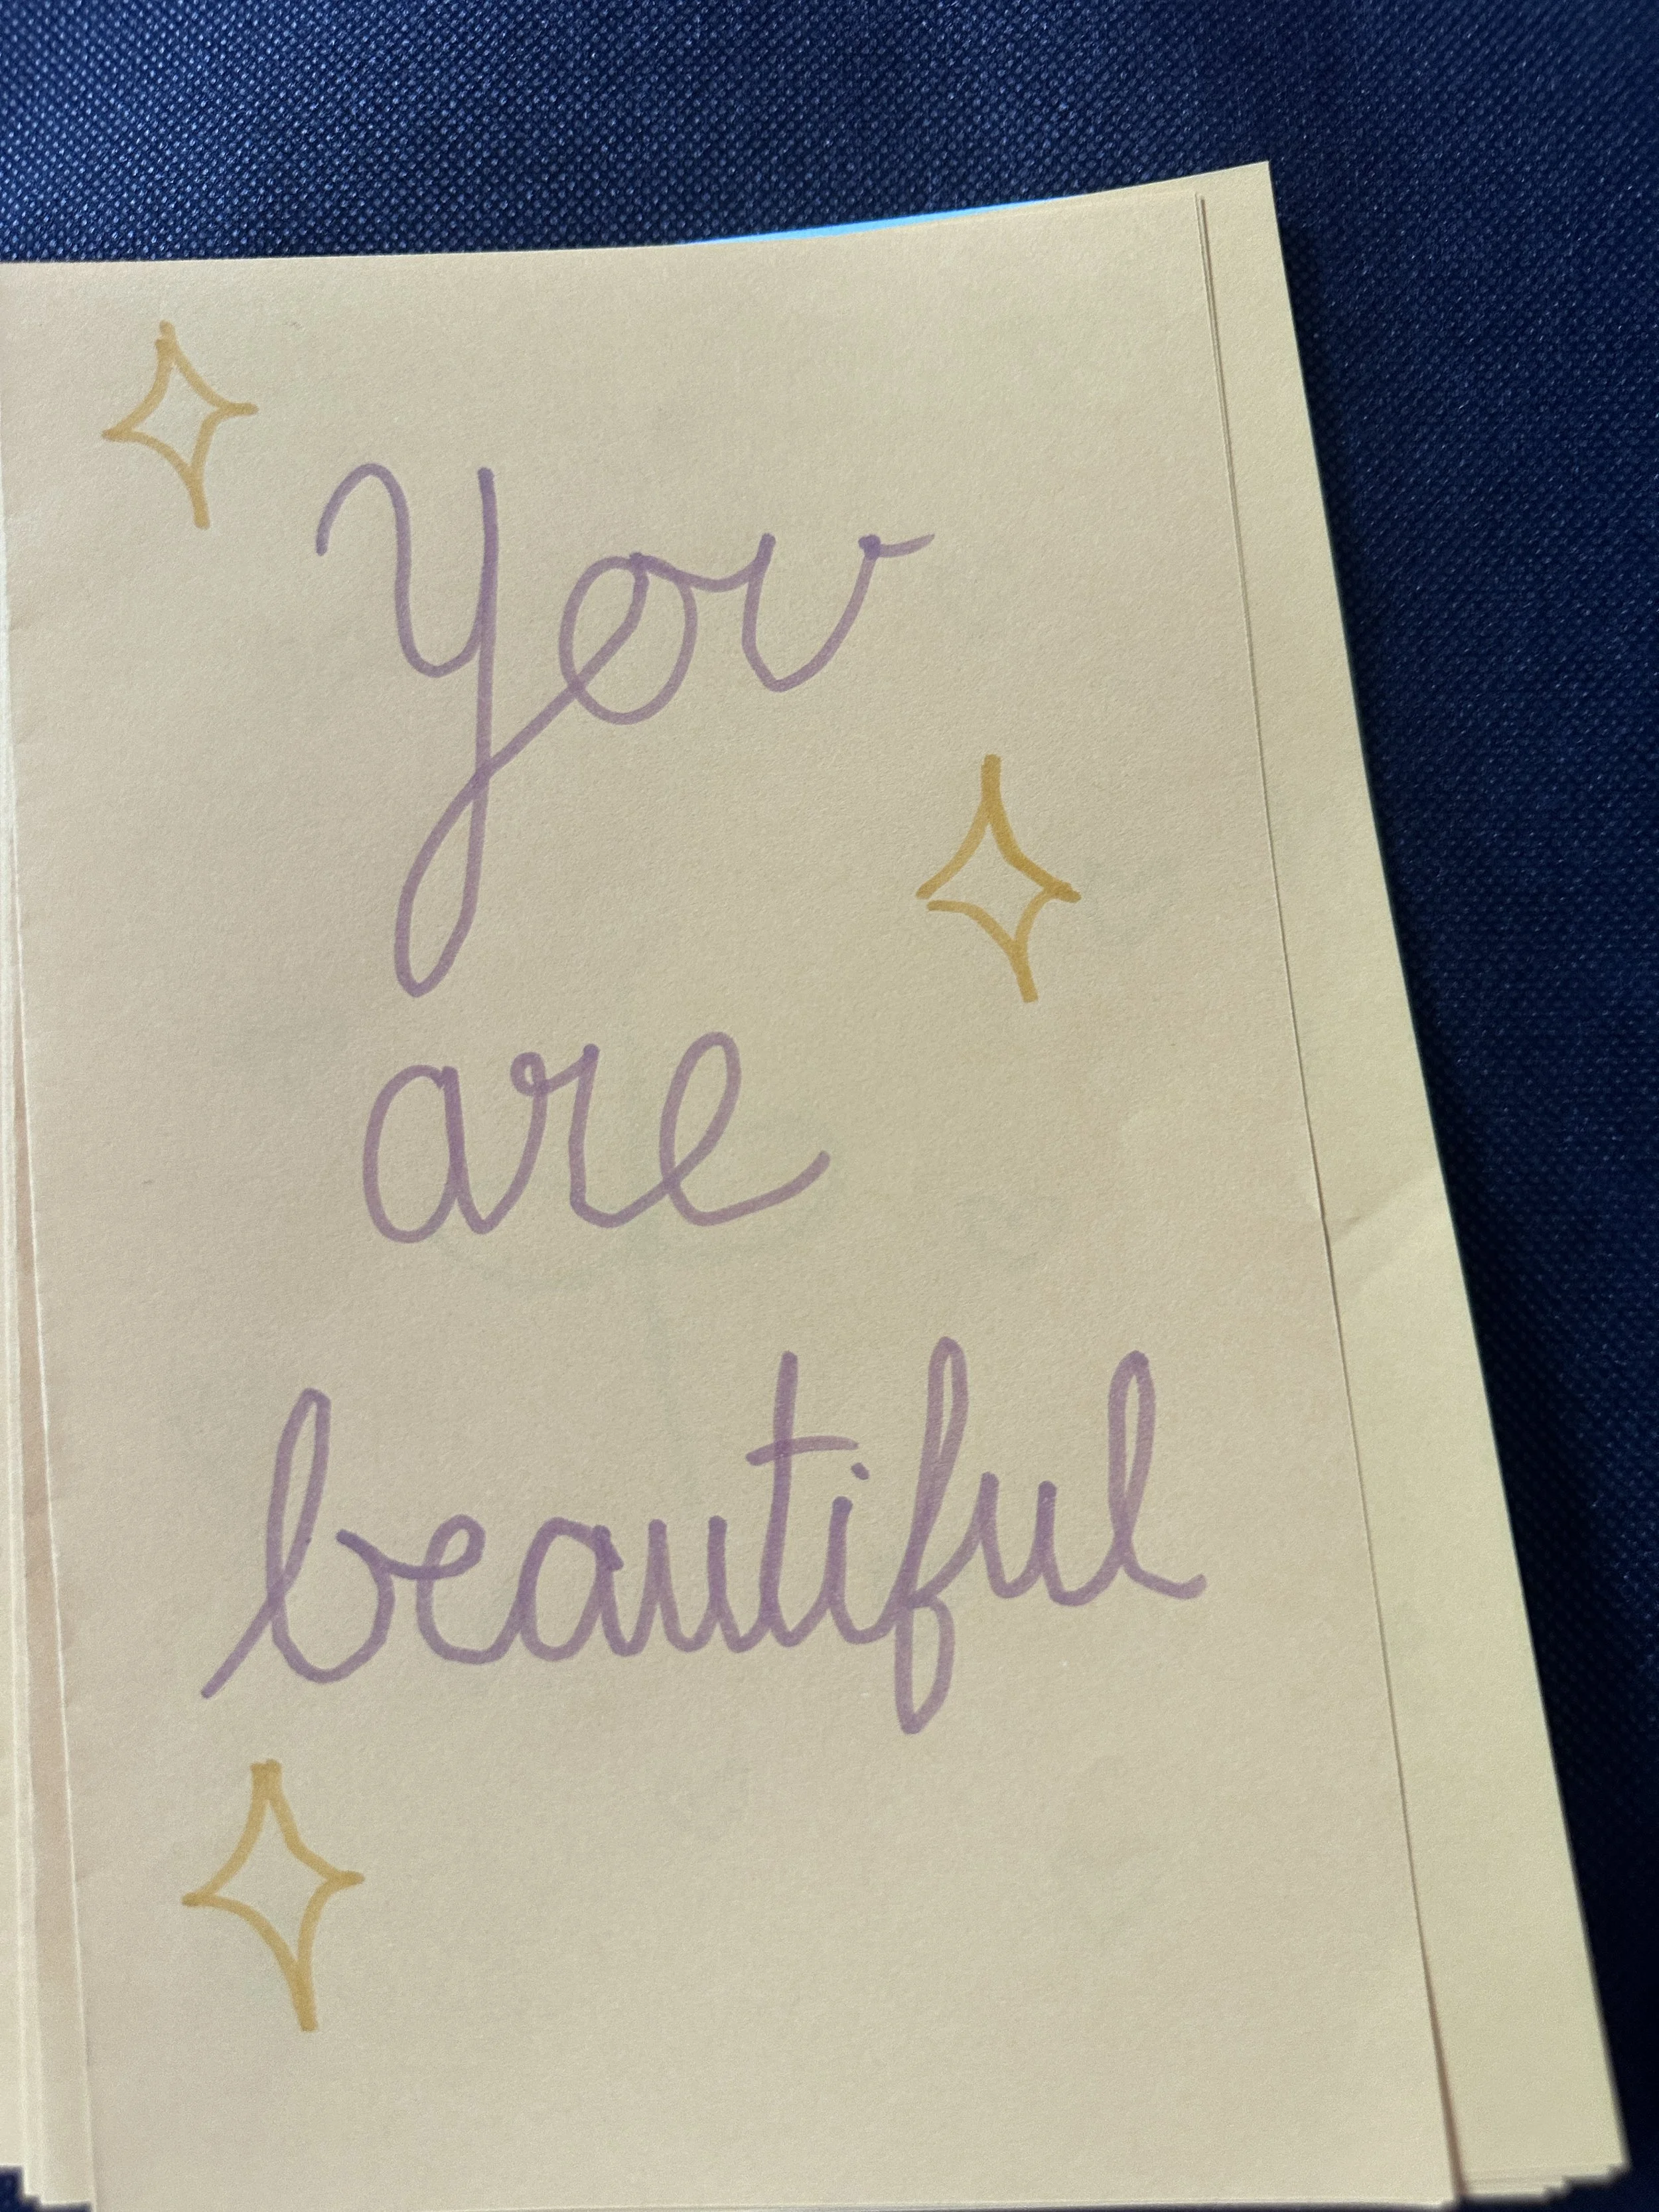 You
are
beautiful